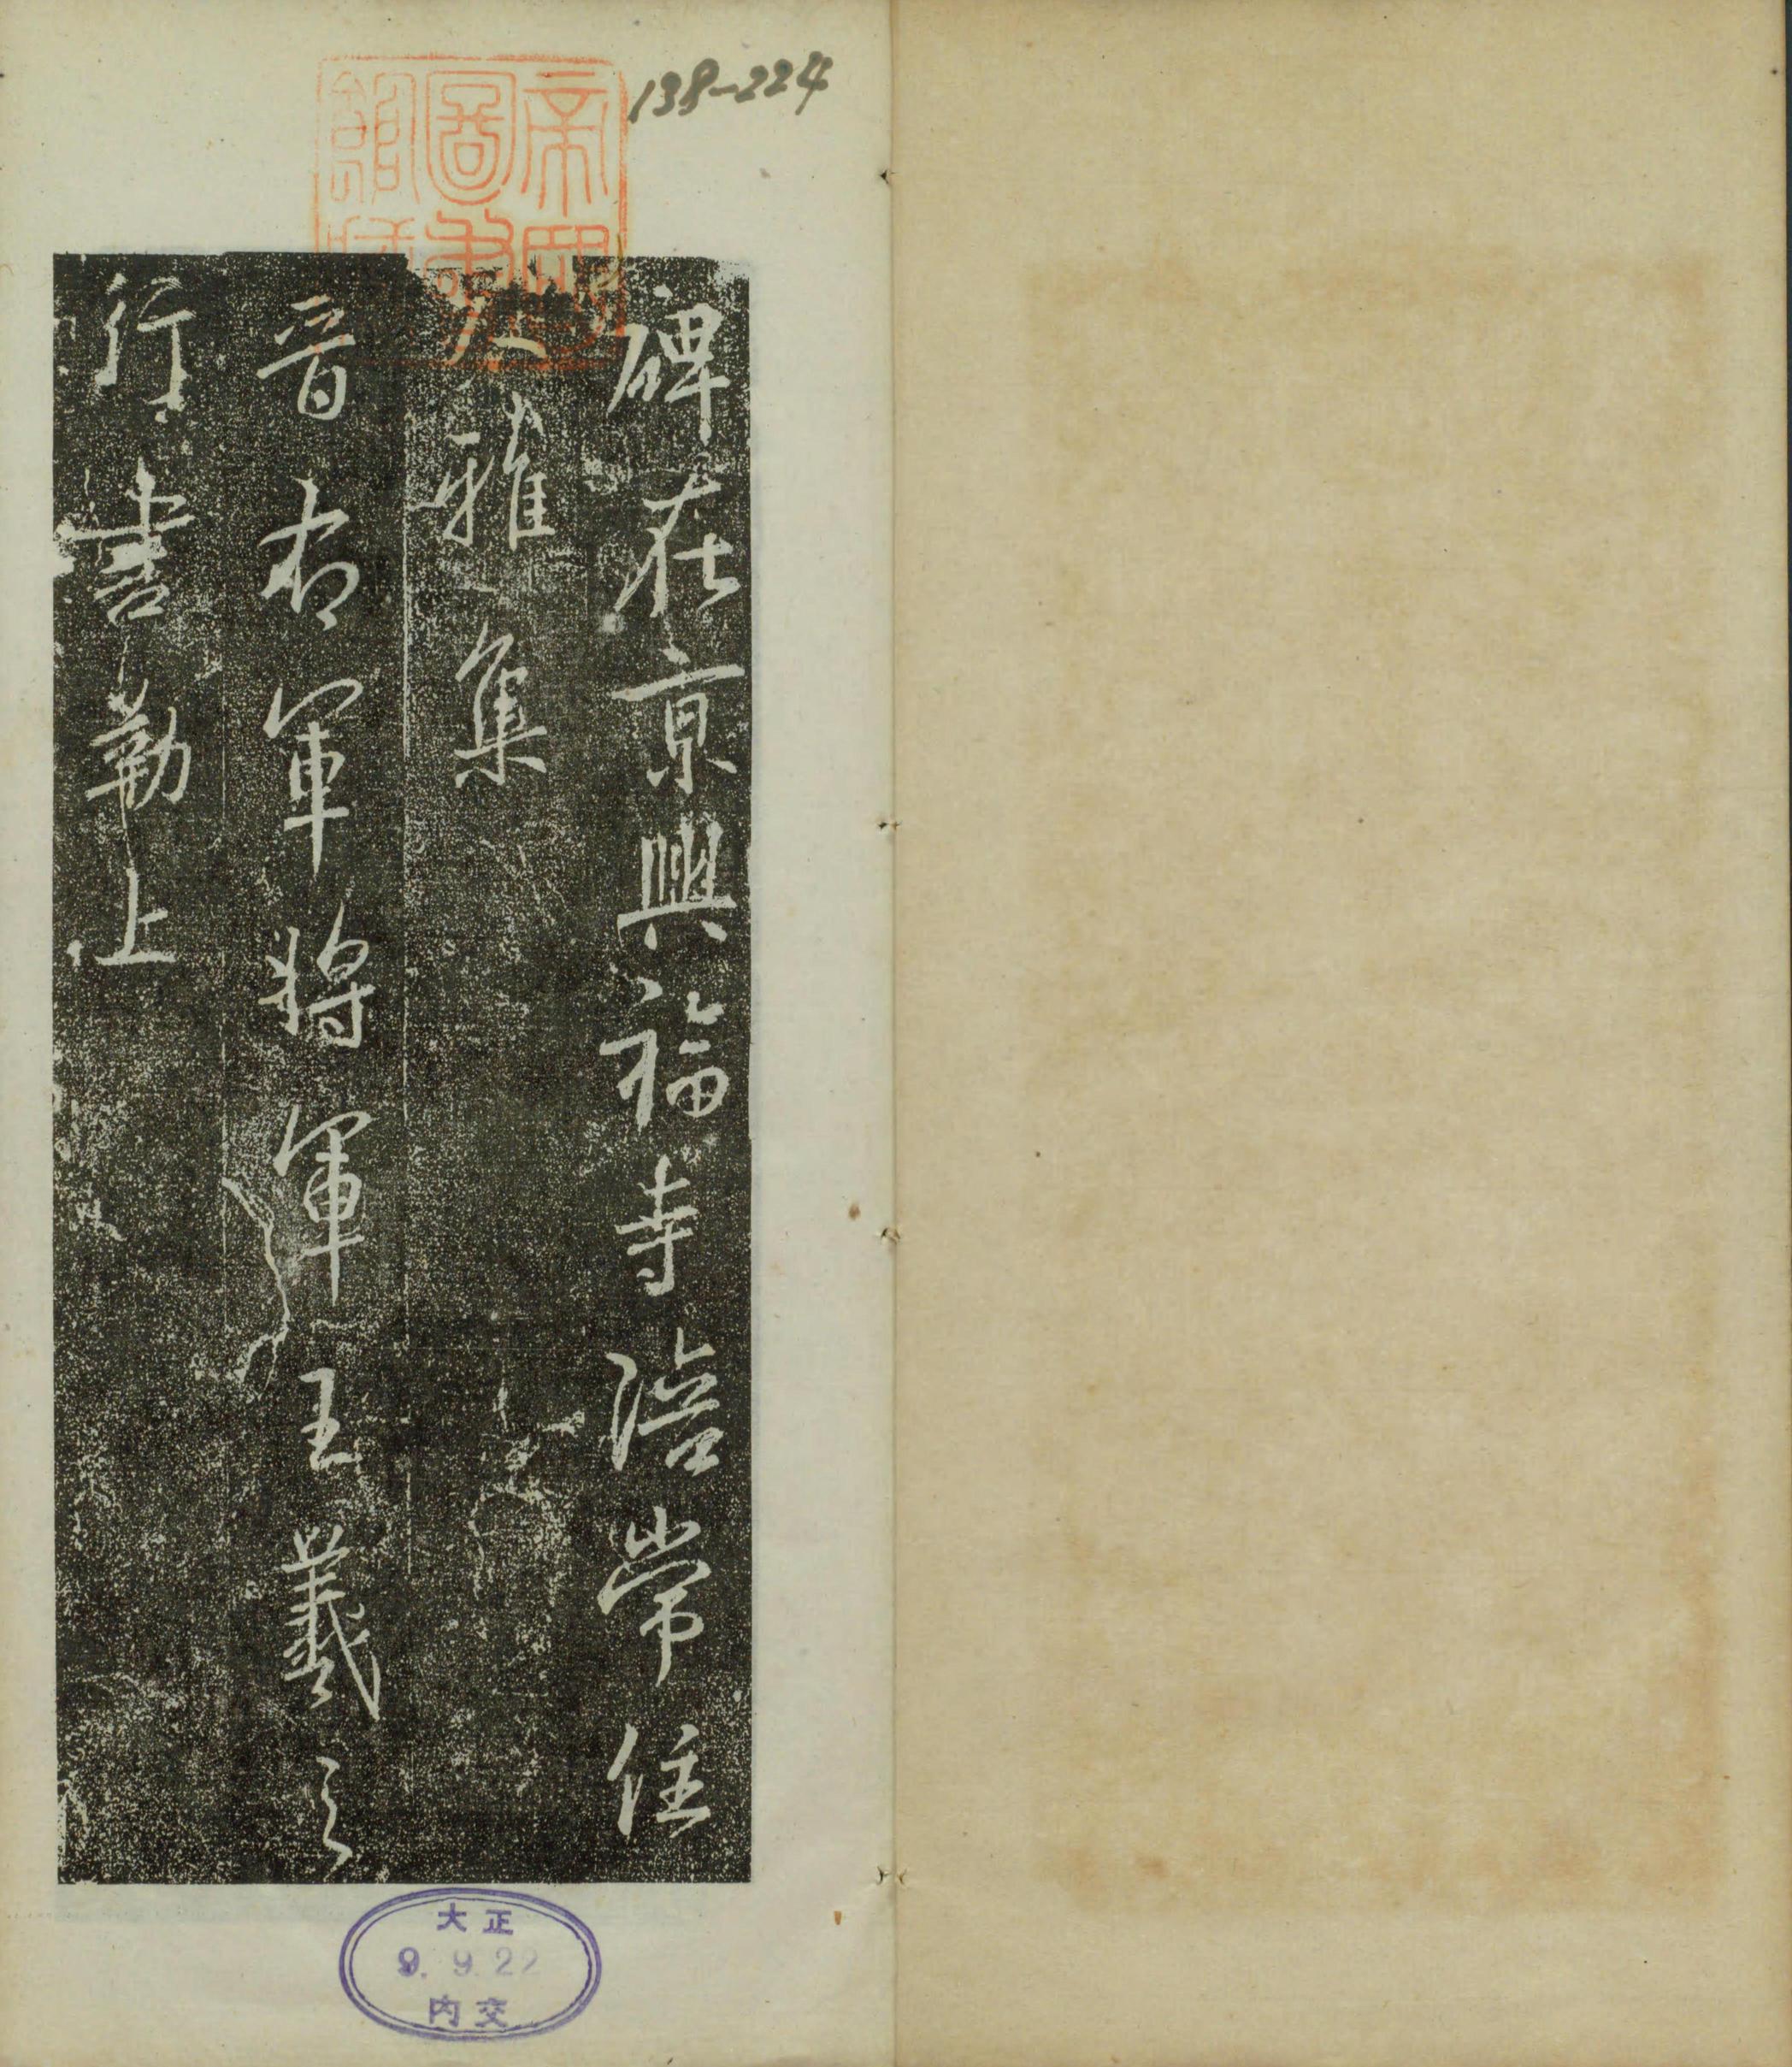 138-224
帝國圖書館藏
碑在京興福寺陪常住
大雅集
晉右軍將軍王羲之
行書勒上
大正
9.9.22
内交